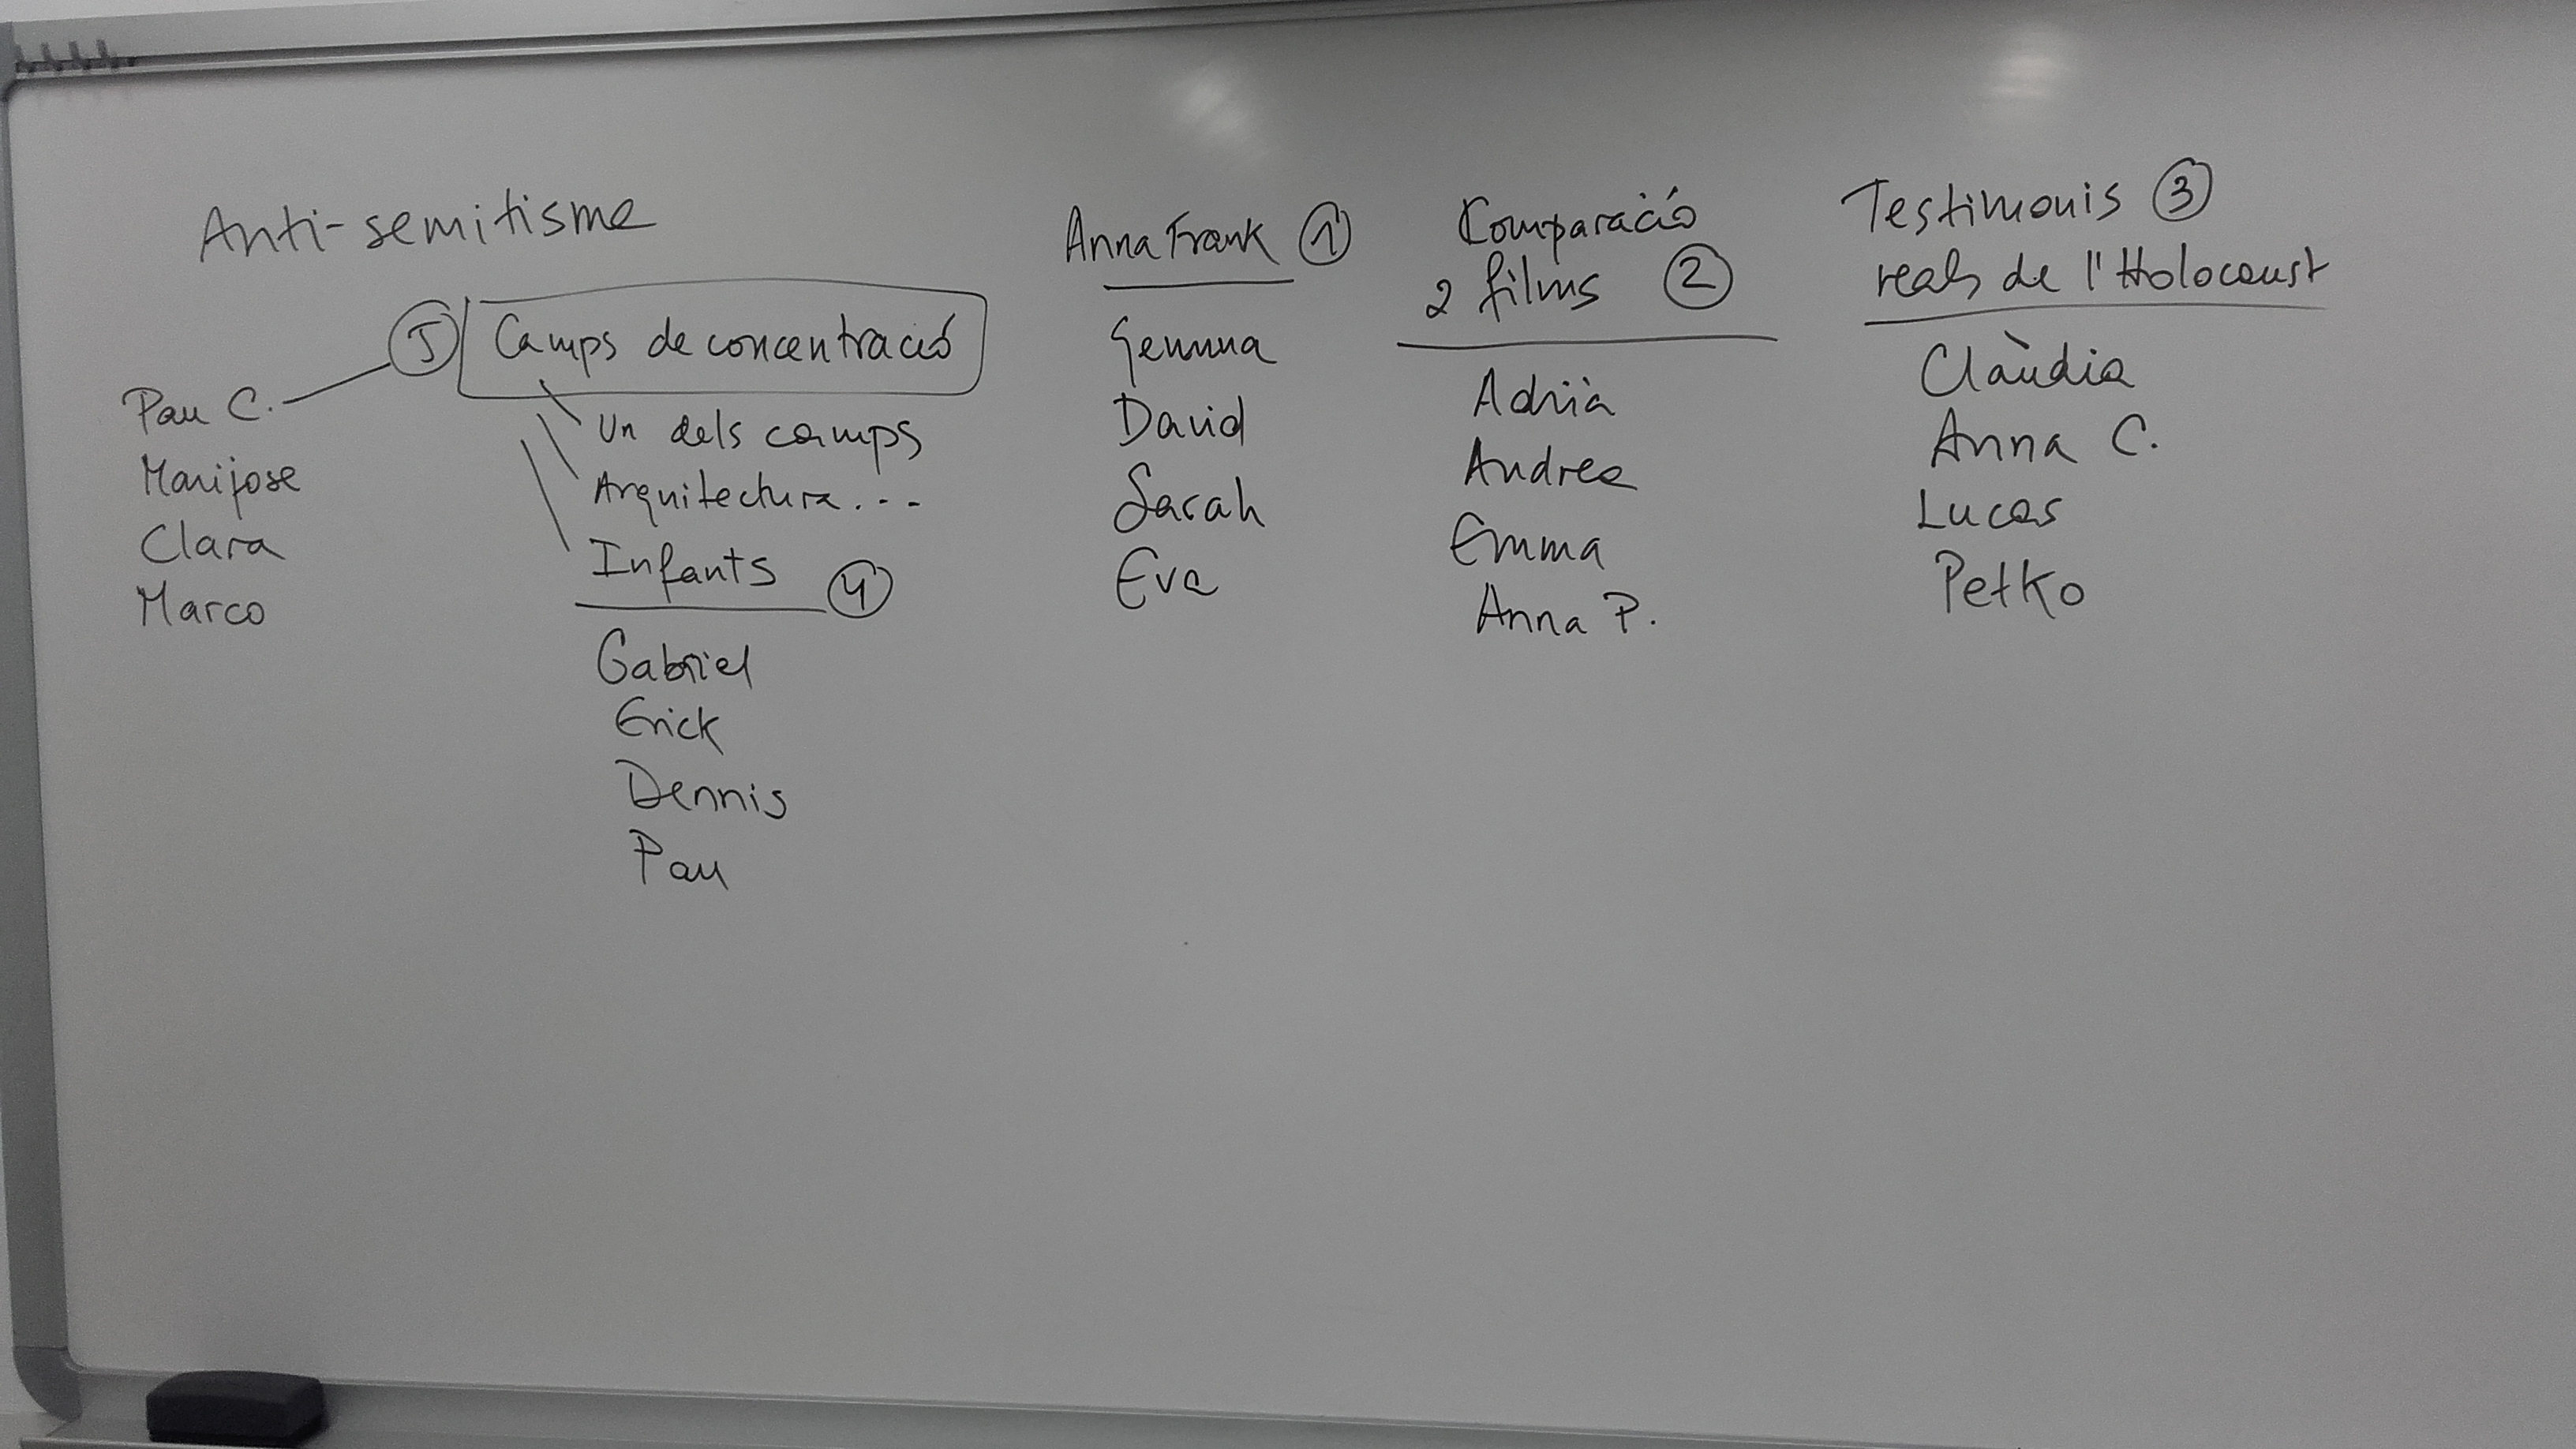 Anti-semitisme
5 Camps de concentració
Pau C.
Marijose
Clara
Marco
Un dels camps
Arquitectura...
Infants 4
Gabriel
Erick
Dennis
Pau
Anna Frank 1
Gemma
David
Sarah
Eva
Comparació
2 films 2
Adrià
Andrea
Emma
Anna P.
Testimonis 3
reals de l'Holocaust
Clàudia
Anna C.
Lucas
Petko